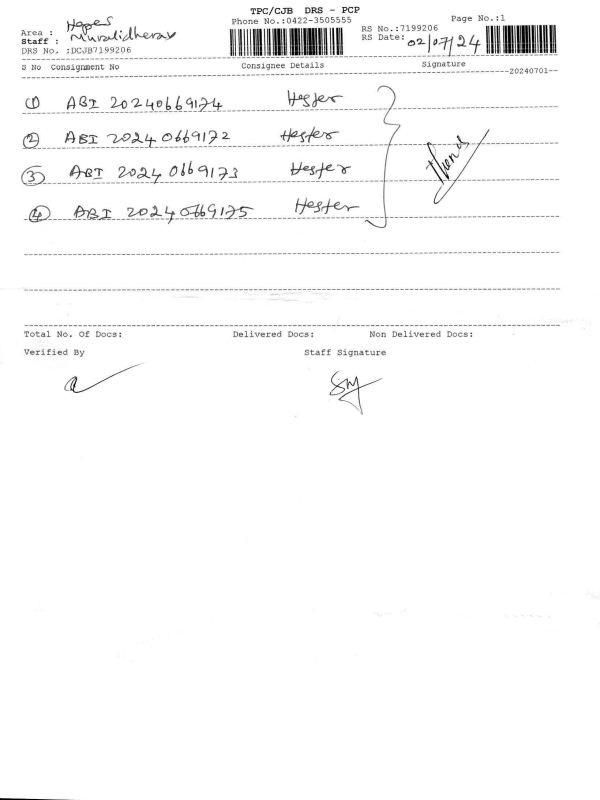 TPC/CJB DRS - PCP
Area : Hopes
Phone No.:0422-3505555
Page No.:1
Staff : Muralidharan
RS No.:7199206
DRS No. :DCJB7199206
RS Date: 02/07/24
S No Consignment No Consignee Details Signature
20240701--
1 ABI 20240669174 Hester
2 ABI 20240669172 Hester
3 ABI 20240669173 Hester
4 ABI 20240669175 Hester
Total No. Of Docs: Delivered Docs: Non Delivered Docs:
Verified By Staff Signature